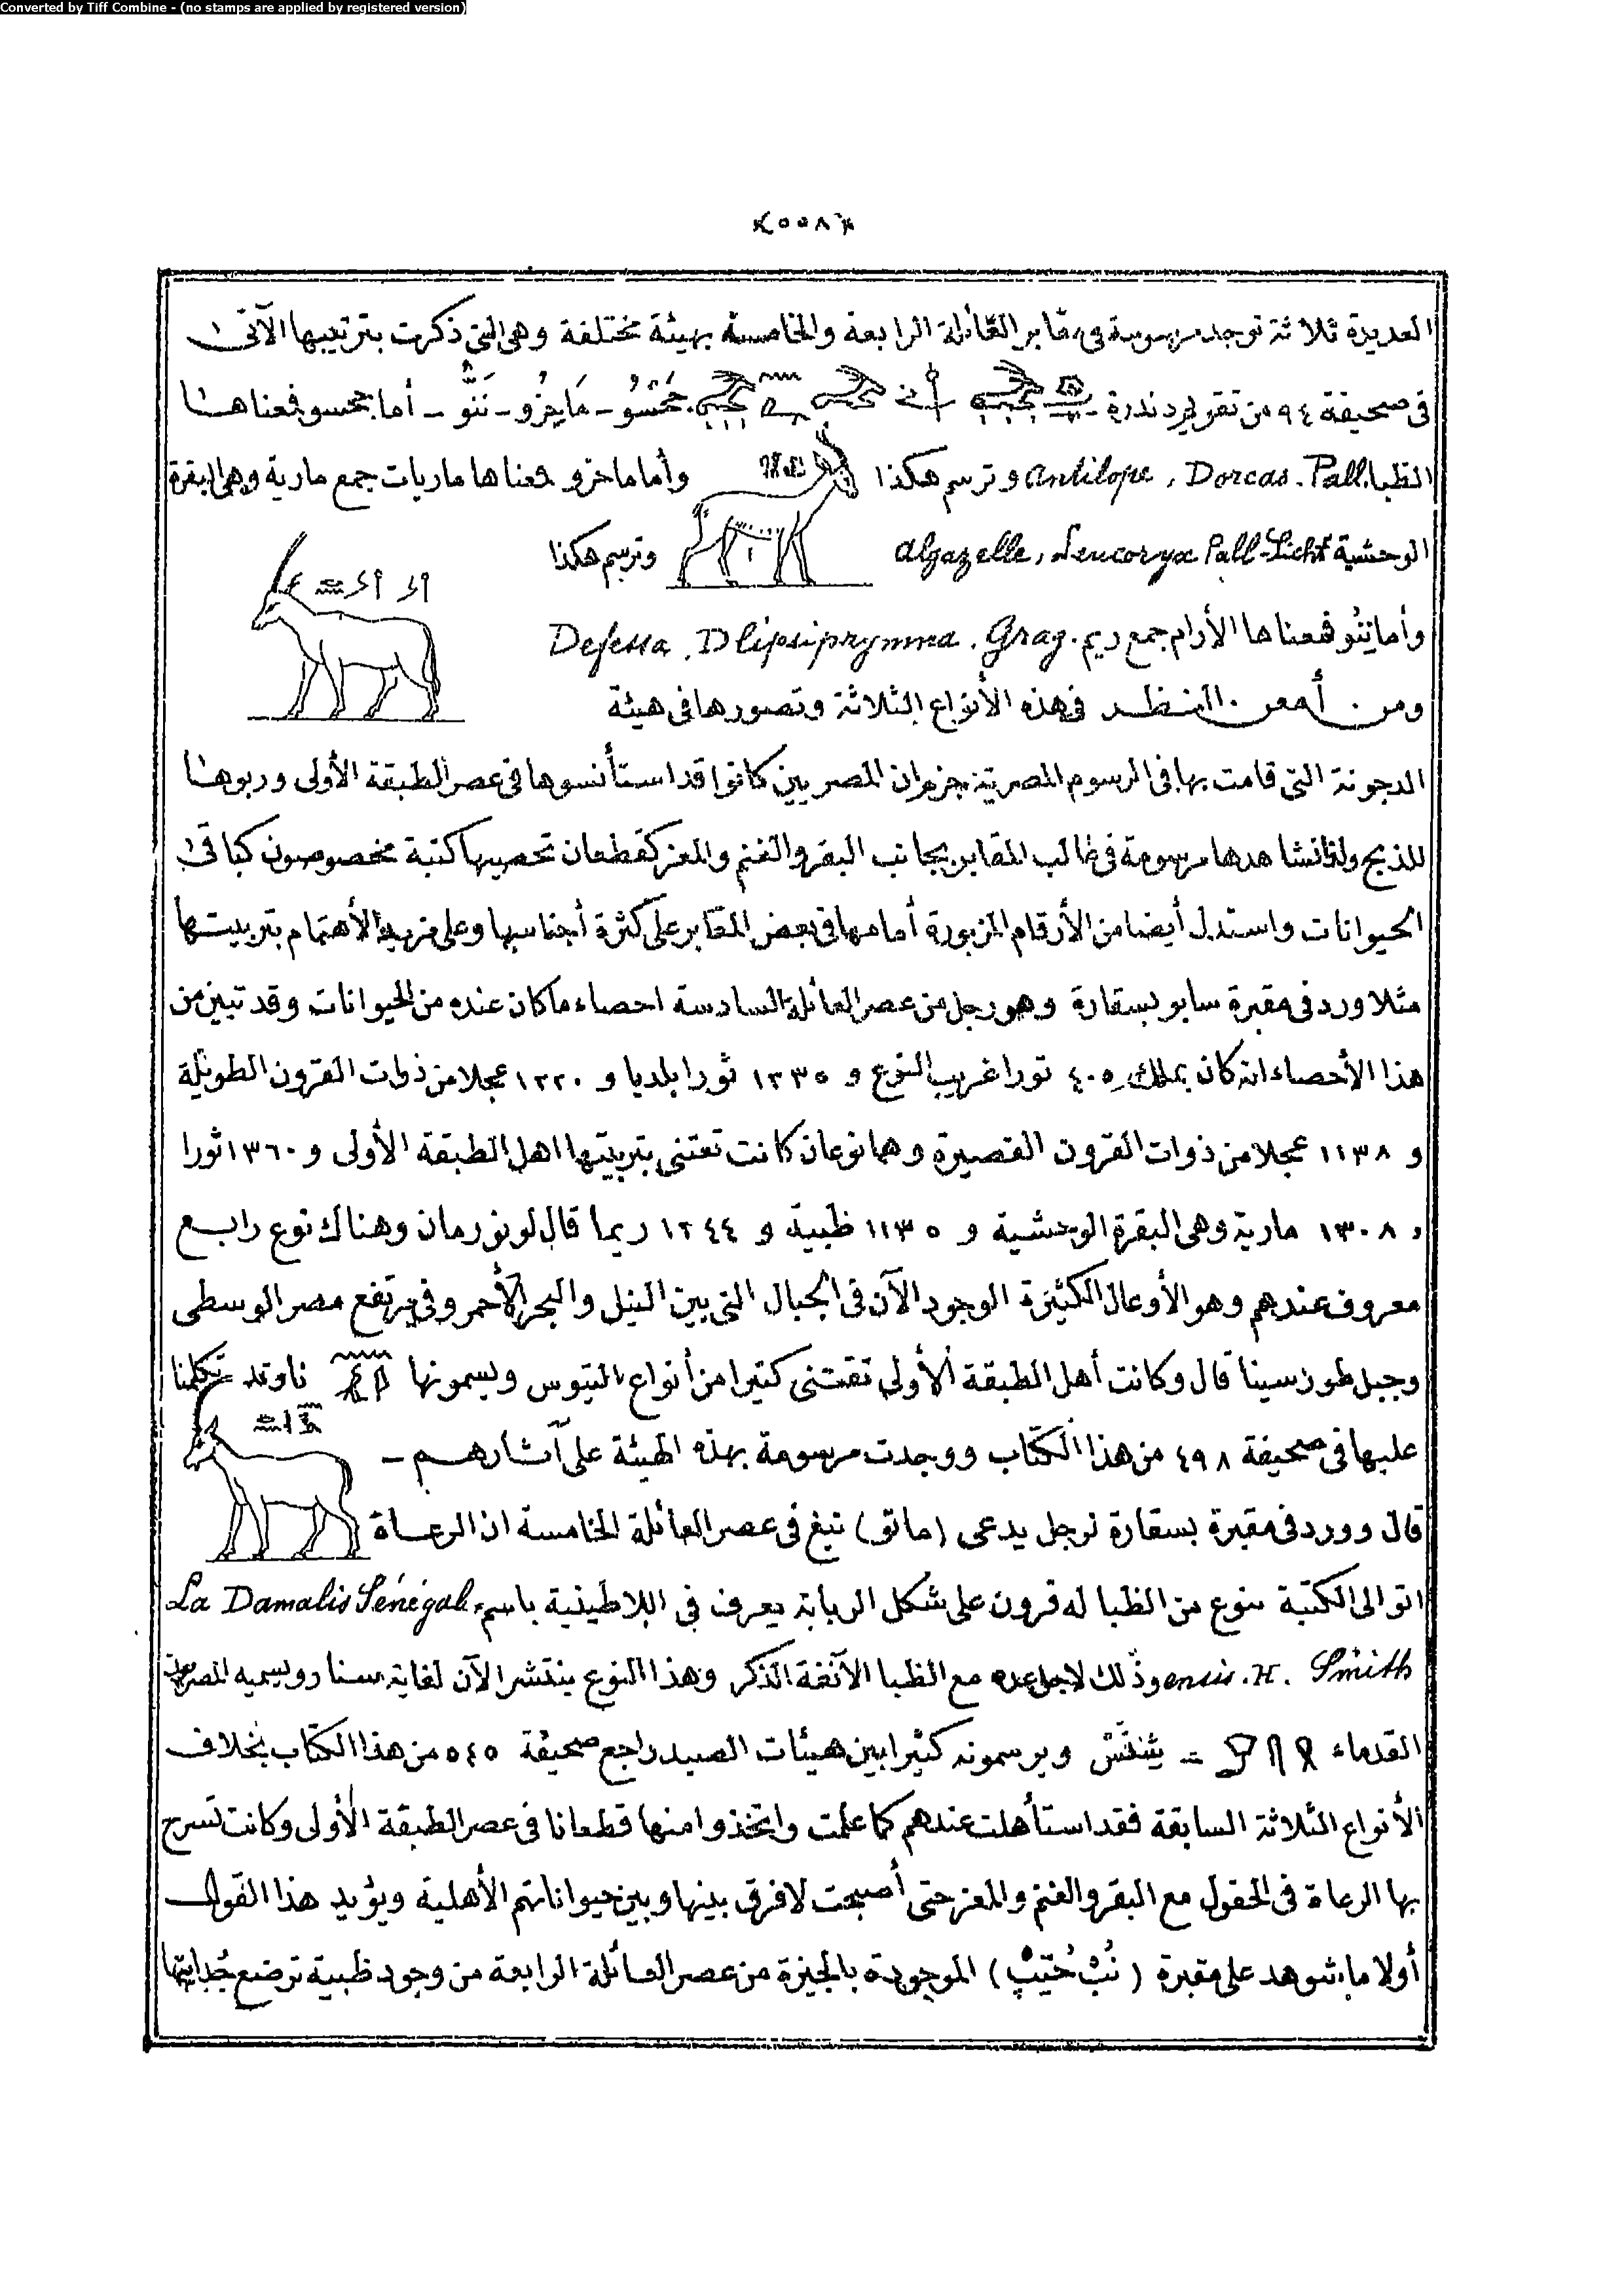 Converted by Tiff Combine - (no stamps are applied by registered version)
﴿٥٥٨﴾
العديدة ثلاثة توجد مرسومة فى مقابر العائلة الرابعة والخامسة بهيئة مختلفة وهى التى ذكرت بترتيبها الآتى
فى صحيفة ٩٤ من تقويم دندرة - أما جحسو فمعناها
الظبا Antilope, Dorcas. Pall. وترسم هكذا وأما ماحزو فمعناها ماريات جمع مارية وهى البقرة
الوحشية Algazelle, Leucoryx Pall-Licht وترسم هكذا
وأما ننو فمعناها الأرام جمع ريم Defessa, D lipsiprymma. Gray.
ومن أمعن النظر فى هذه الأنواع الثلاثة وتصورها فى هيئة
الدجونة التى قامت بها فى الرسوم المصرية جزم ان المصريين كانوا قد استأنسوها فى عصر الطبقة الأولى وربوها
للذبح ولذا نشاهدها مرسومة فى غالب المقابر بجانب البقر والغنم والمعز كقطعان تحصيها كتبة مخصوصون كباقى
الحيوانات واستدل أيضا من الأرقام المزبورة أمامها فى بعض المقابر على كثرة أجناسها وعلى مزيد الأهتمام بتربيتها
مثلا ورد فى مقبرة سابو بسقارة وهو رجل من عصر العائلة السادسة احصاء ما كان عنده من الحيوانات وقد تبين من
هذا الأحصاء انه كان يملك ٤٠٥ ثورا غريب النوع و ١٢٣٥ ثورا بلديا و ١٢٢٠ عجلا من ذوات القرون الطويلة
و ١١٣٨ عجلا من ذوات القرون القصيرة وهما نوعان كانت تعتنى بتربيتها اهل الطبقة الأولى و ١٣٦٠ ثورا
و ١٣٠٨ مارية وهى البقرة الوحشية و ١١٣٥ ظبية و ١٢٤٤ ريما قال لونورمان وهناك نوع رابع
معروف عندهم وهو الأوعال الكثيرة الوجود الآن فى الجبال التى بين النيل والبحر الأحمر وفى مرتفع مصر الوسطى
وجبل طور سينا قال وكانت أهل الطبقة الأولى تقتنى كثيرا من أنواع التيوس ويسمونها وقد تكلمنا
عليها فى صحيفة ٤٩٨ من هذا الكتاب ووجدت مرسومة بهذه الهيئة على آثارهم -
قال وورد فى مقبرة بسقارة لرجل يدعى نبغ فى عصر العائلة الخامسة ان الرعاة
اتوا الى الكتبة بنوع من الظبا له قرون على شكل الربابة يعرف فى اللاطينية باسم La Damalis Sénégal
ensis. H. Smith وذلك لاجل عده مع الظبا الآنفة الذكر وهذا النوع ينتشر الآن لغاية سنار ويسميه المصريون
القدماء - ويرسمونه كثيرا بين هيئات الصيد راجع صحيفة ٥٤٥ من هذا الكتاب بخلاف
الأنواع الثلاثة السابقة فقد استأهلت عندهم كما علمت واتخذوا منها قطعانا فى عصر الطبقة الأولى وكانت تسرح
بها الرعاة فى الحقول مع البقر والغنم والمعز حتى أصبحت لا فرق بينها وبين حيواناتهم الأهلية ويؤيد هذا القول
أولا ما شوهد على مقبرة ( نُبْ حُتِپْ ) الموجودة بالجيزة من عصر العائلة الرابعة من وجود ظبية ترضع جدايتها